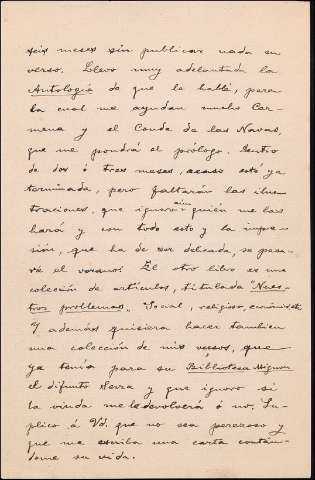 seis meses sin publicar nada en
verso. Llevo muy adelantada la
Antología de que le hablé, para
la cual me ayudan mucho Car-
mena y el Conde de las Navas,
que me pondrá el prólogo. Dentro
de dos ó tres meses, acaso esté ya
terminada, pero faltarán las ilus-
traciones, que ignoro aún quién me las
hará y con todo esto y la impre-
sión, que ha de ser delicada, se pasa-
rá el verano. El otro libro es una
colección de artículos, titulada "Nues-
tros problemas". Social, religioso, económico, etc.
Y además quisiera hacer tambien
una colección de mis versos, que
ya tenía para su Biblioteca Mignon
el difunto Serra y que ignoro si
la viuda me la devolverá ó no. Su-
plico á Vd. que no sea perezoso y
que me escriba una carta contán-
dome su vida.